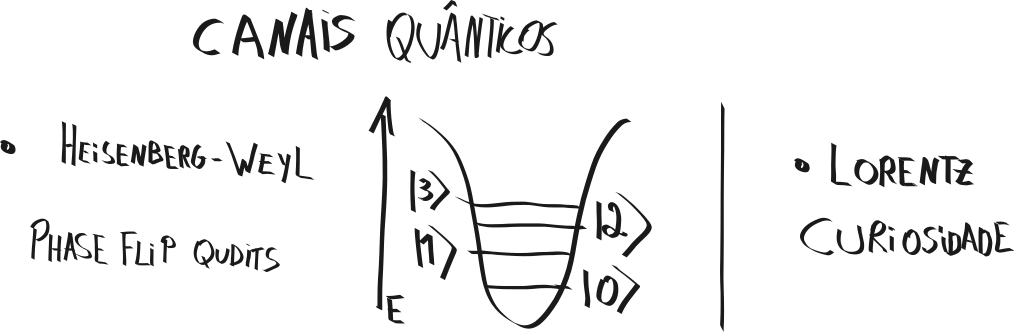 CANAIS QUÂNTICOS
• HEISENBERG-WEYL
PHASE FLIP QUDITS
|3>
|2>
|1>
|0>
E
• LORENTZ
CURIOSIDADE